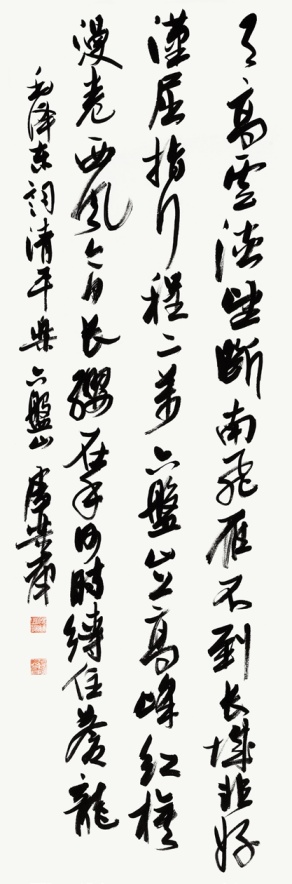 天高雲淡望斷南飛雁不到长城非好
漢屈指行程二萬六盤山上高峰紅旗
漫卷西風今日长纓在手何時縛住蒼龍
毛泽东詞清平樂六盤山